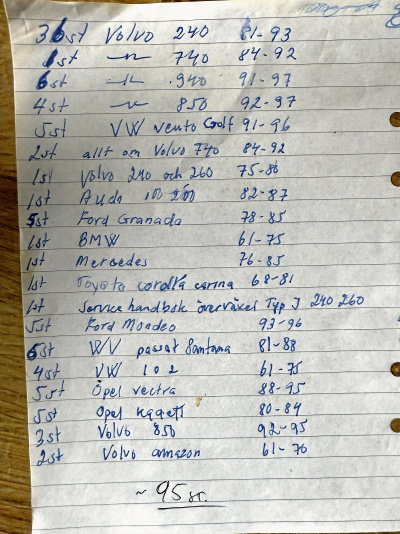 36st Volvo 240 81-93
1st -"- 740 84-92
6st -"- 940 91-97
4st -"- 850 92-97
5st VW vento Golf 91-96
2st allt om Volvo 740 84-92
1st Volvo 240 och 260 75-86
1st Audi 100 200 82-87
5st Ford Granada 78-85
1st BMW 61-75
1st Mercedes 76-85
1st Toyota corolla carina 68-81
1st Service handbok överväxel Typ J 240 260
5st Ford Mondeo 93-96
5st WV passat Santana 81-88
4st VW 1 0 2 61-75
5st Opel vectra 88-95
5st Opel Kadett 80-84
3st Volvo 850 92-95
2st Volvo amazon 61-70
~ 95 st.